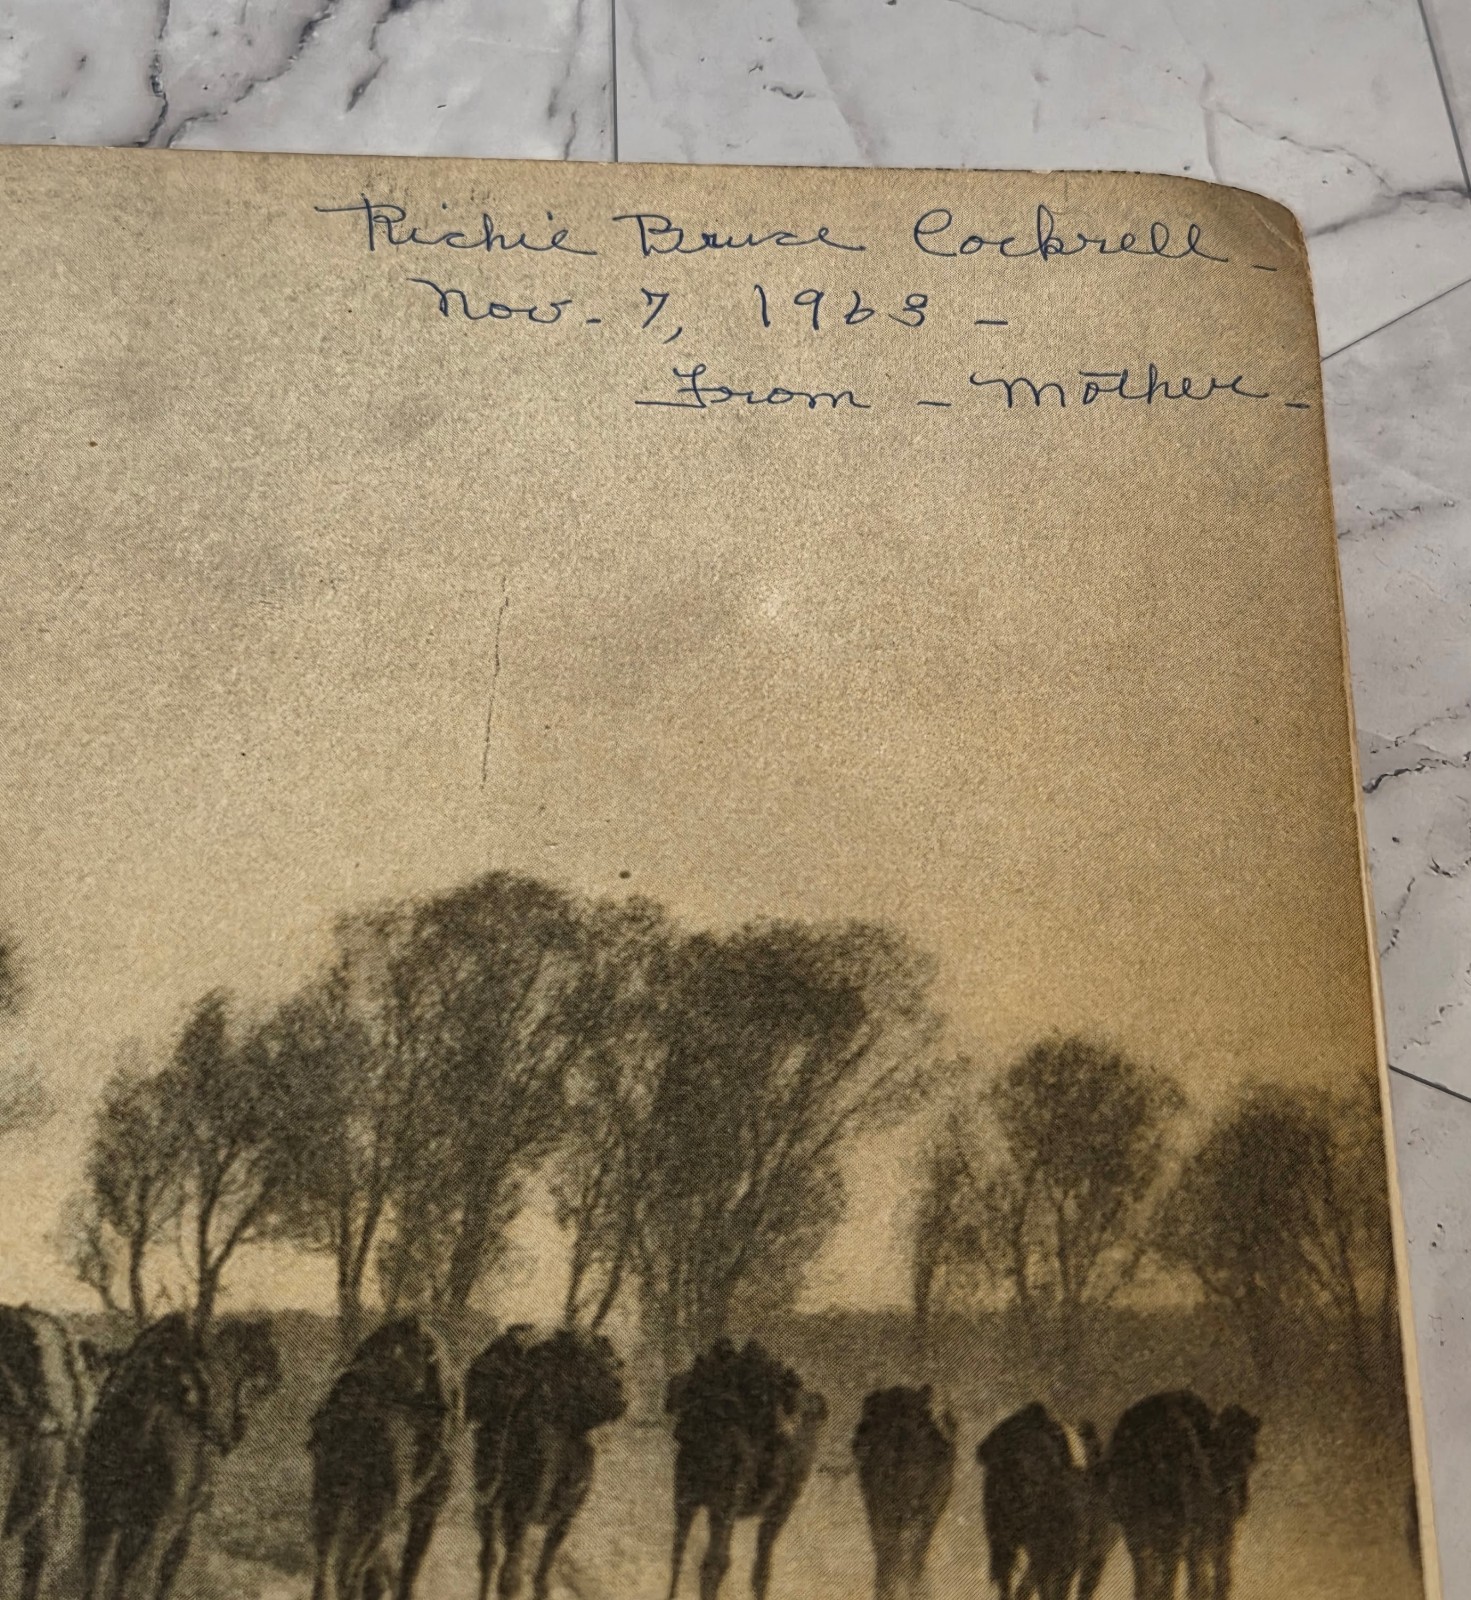 Richie Bruce Cockrell -
Nov. 7, 1963 -
From - Mother -